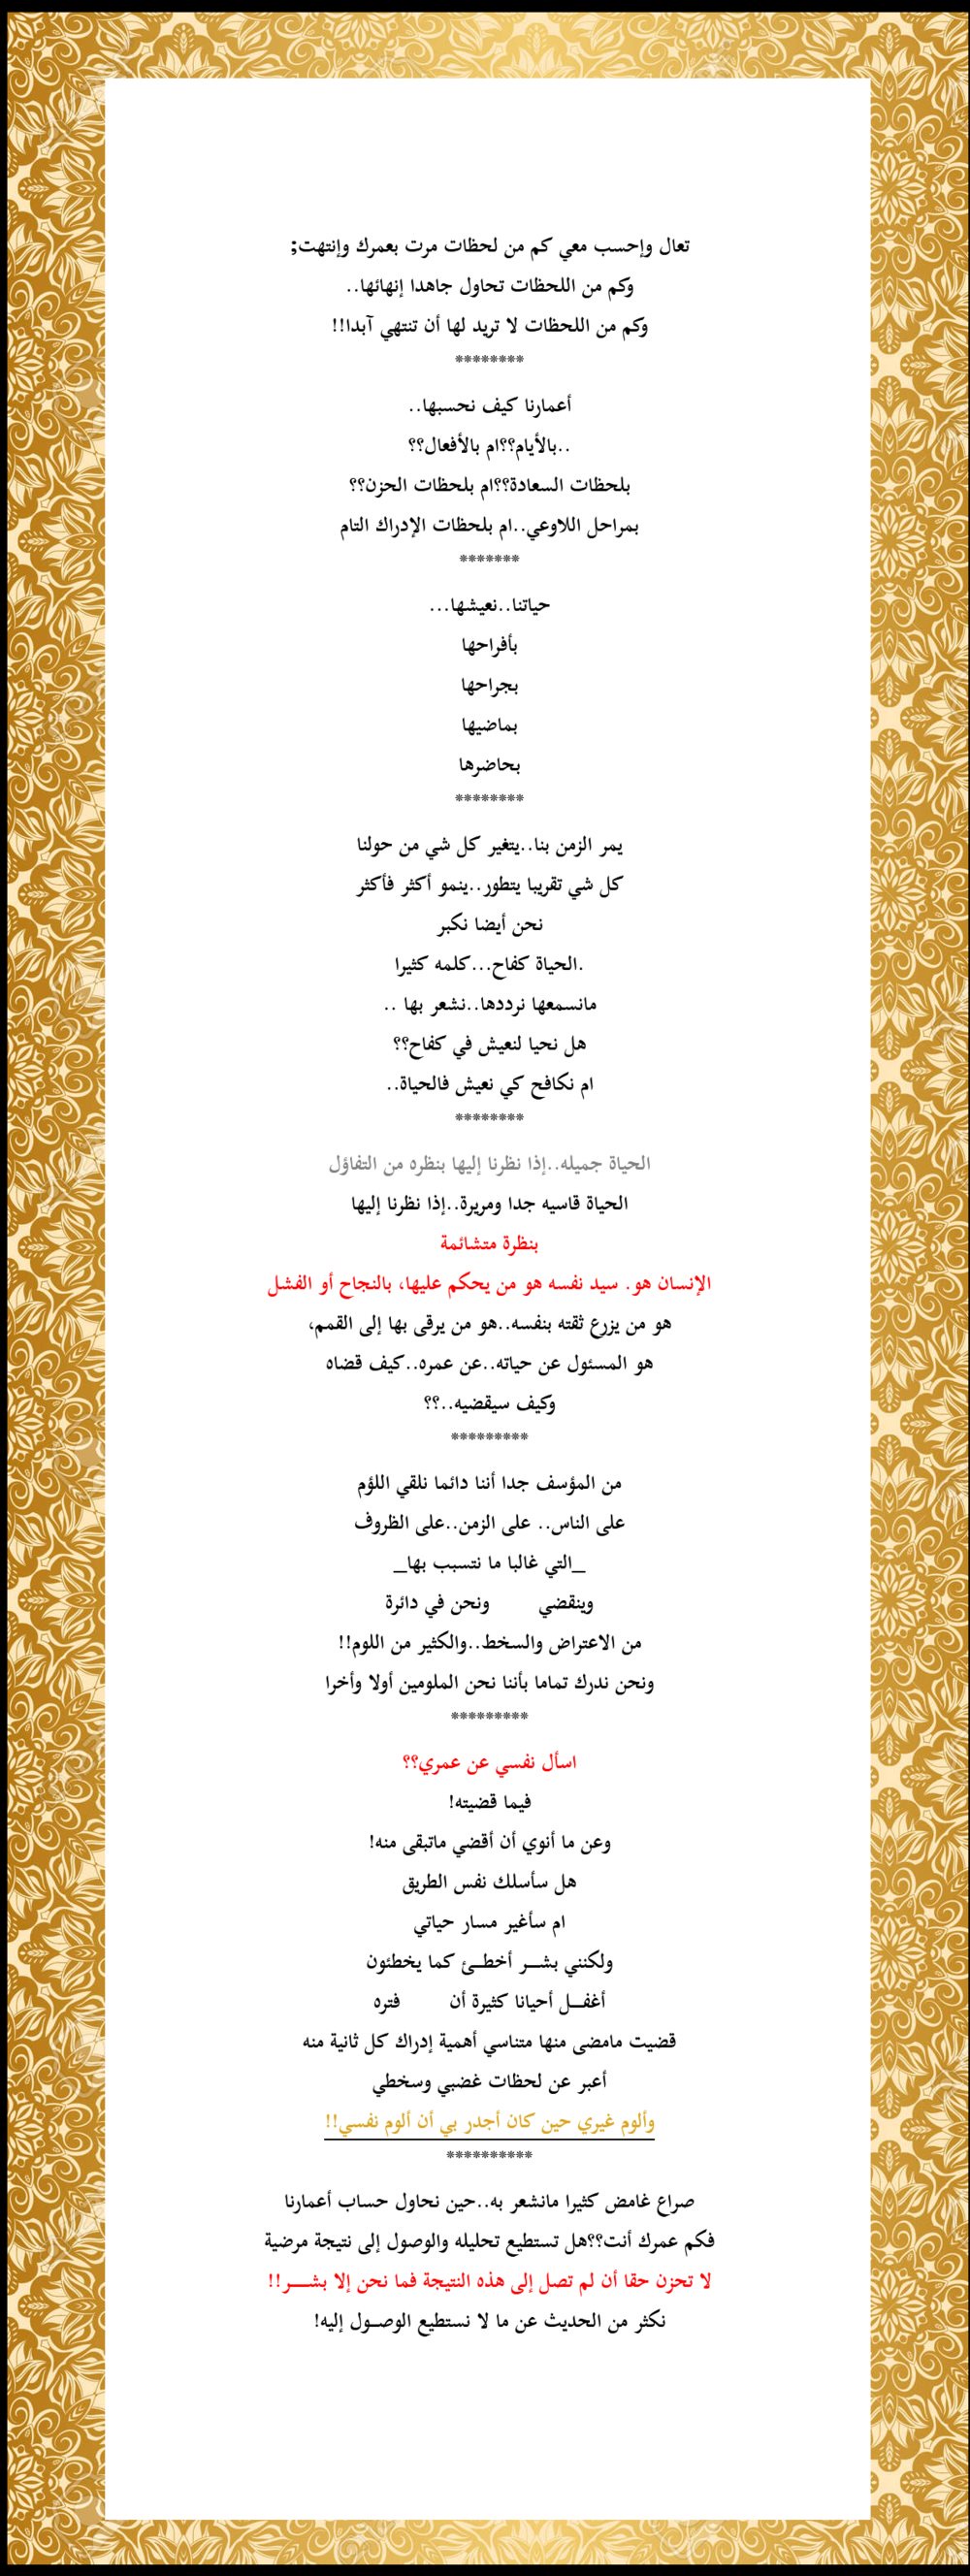 تعال وإحسب معي كم من لحظات مرت بعمرك وإنتهت;
وكم من اللحظات تحاول جاهدا إنهائها..
وكم من اللحظات لا تريد لها أن تنتهي آبدا!!
********
أعمارنا كيف نحسبها..
..بالأيام؟؟ام بالأفعال؟؟
بلحظات السعادة؟؟ام بلحظات الحزن؟؟
بمراحل اللاوعي..ام بلحظات الإدراك التام
*******
حياتنا..نعيشها...
بأفراحها
بجراحها
بماضيها
بحاضرها
********
يمر الزمن بنا..يتغير كل شي من حولنا
كل شي تقريبا يتطور..ينمو أكثر فأكثر
نحن أيضا نكبر
.الحياة كفاح...كلمه كثيرا
مانسمعها نرددها..نشعر بها ..
هل نحيا لنعيش في كفاح؟؟
ام نكافح كي نعيش فالحياة..
********
الحياة جميله..إذا نظرنا إليها بنظره من التفاؤل
الحياة قاسيه جدا ومريرة..إذا نظرنا إليها
بنظرة متشائمة
الإنسان هو. سيد نفسه هو من يحكم عليها، بالنجاح أو الفشل
هو من يزرع ثقته بنفسه..هو من يرقى بها إلى القمم،
هو المسئول عن حياته..عن عمره..كيف قضاه
وكيف سيقضيه..؟؟
*********
من المؤسف جدا أننا دائما نلقي اللؤم
على الناس.. على الزمن..على الظروف
_التي غالبا ما نتسبب بها_
وينقضي ونحن في دائرة
من الاعتراض والسخط..والكثير من اللوم!!
ونحن ندرك تماما بأننا نحن الملومين أولا وأخرا
*********
اسأل نفسي عن عمري؟؟
فيما قضيته!
وعن ما أنوي أن أقضي ماتبقى منه!
هل سأسلك نفس الطريق
ام سأغير مسار حياتي
ولكنني بشـــر أخطــئ كما يخطئون
أغفــل أحيانا كثيرة أن فتره
قضيت مامضى منها متناسي أهمية إدراك كل ثانية منه
أعبر عن لحظات غضبي وسخطي
وألوم غيري حين كان أجدر بي أن ألوم نفسي!!
**********
صراع غامض كثيرا مانشعر به..حين نحاول حساب أعمارنا
فكم عمرك أنت؟؟هل تستطيع تحليله والوصول إلى نتيجة مرضية
لا تحزن حقا أن لم تصل إلى هذه النتيجة فما نحن إلا بشــــر!!
نكثر من الحديث عن ما لا نستطيع الوصــول إليه!